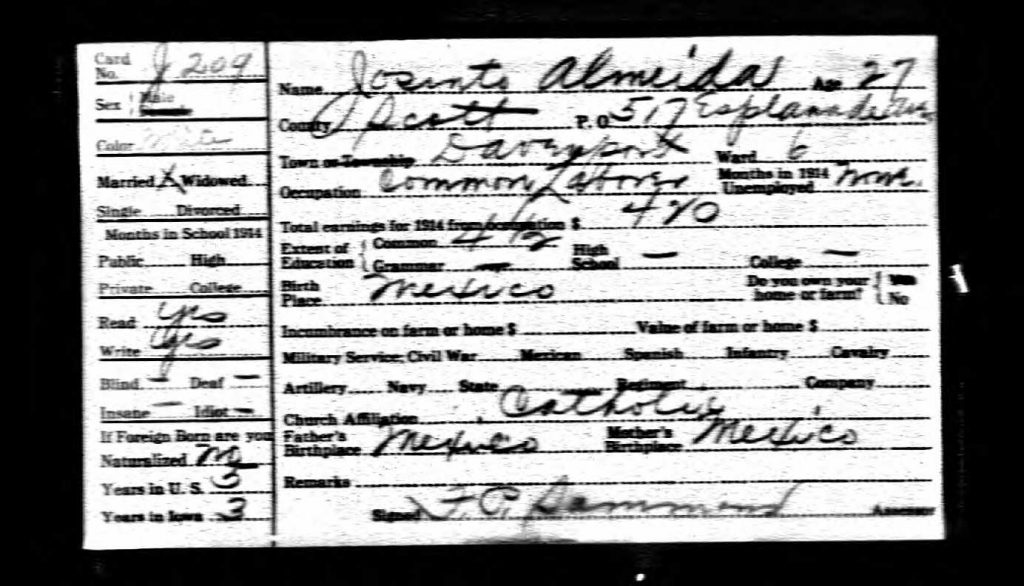 Card No. J 209
Sex Male
Color White
Married X Widowed
Single Divorced
Months in School 1914
Public High
Private College
Read yes
Write yes
Blind — Deaf —
Insane — Idiot —
If Foreign Born are you
Naturalized no
Years in U. S. 5
Years in Iowa 3
Name Josinto Almeida Age 27
County Scott P. O. 517 Esplanade Ave
Town or Township Davenport Ward 6
Occupation Common Laborer Months in 1914 Unemployed None.
Total earnings for 1914 from occupation $ 420
Extent of Education { Common 4 1/2 Grammar — High School — College —
Birth Place Mexico Do you own your home or farm? { Yes No
Incumbrance on farm or home $ Value of farm or home $
Military Service; Civil War Mexican Spanish Infantry Cavalry
Artillery Navy State Regiment Company
Church Affiliation Catholic
Father's Birthplace Mexico Mother's Birthplace Mexico
Remarks
Signed F. P. Hammond Assessor